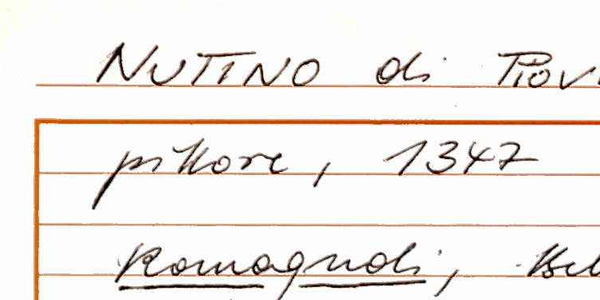 NUTINO di
pittore, 1347
Romagnoli,